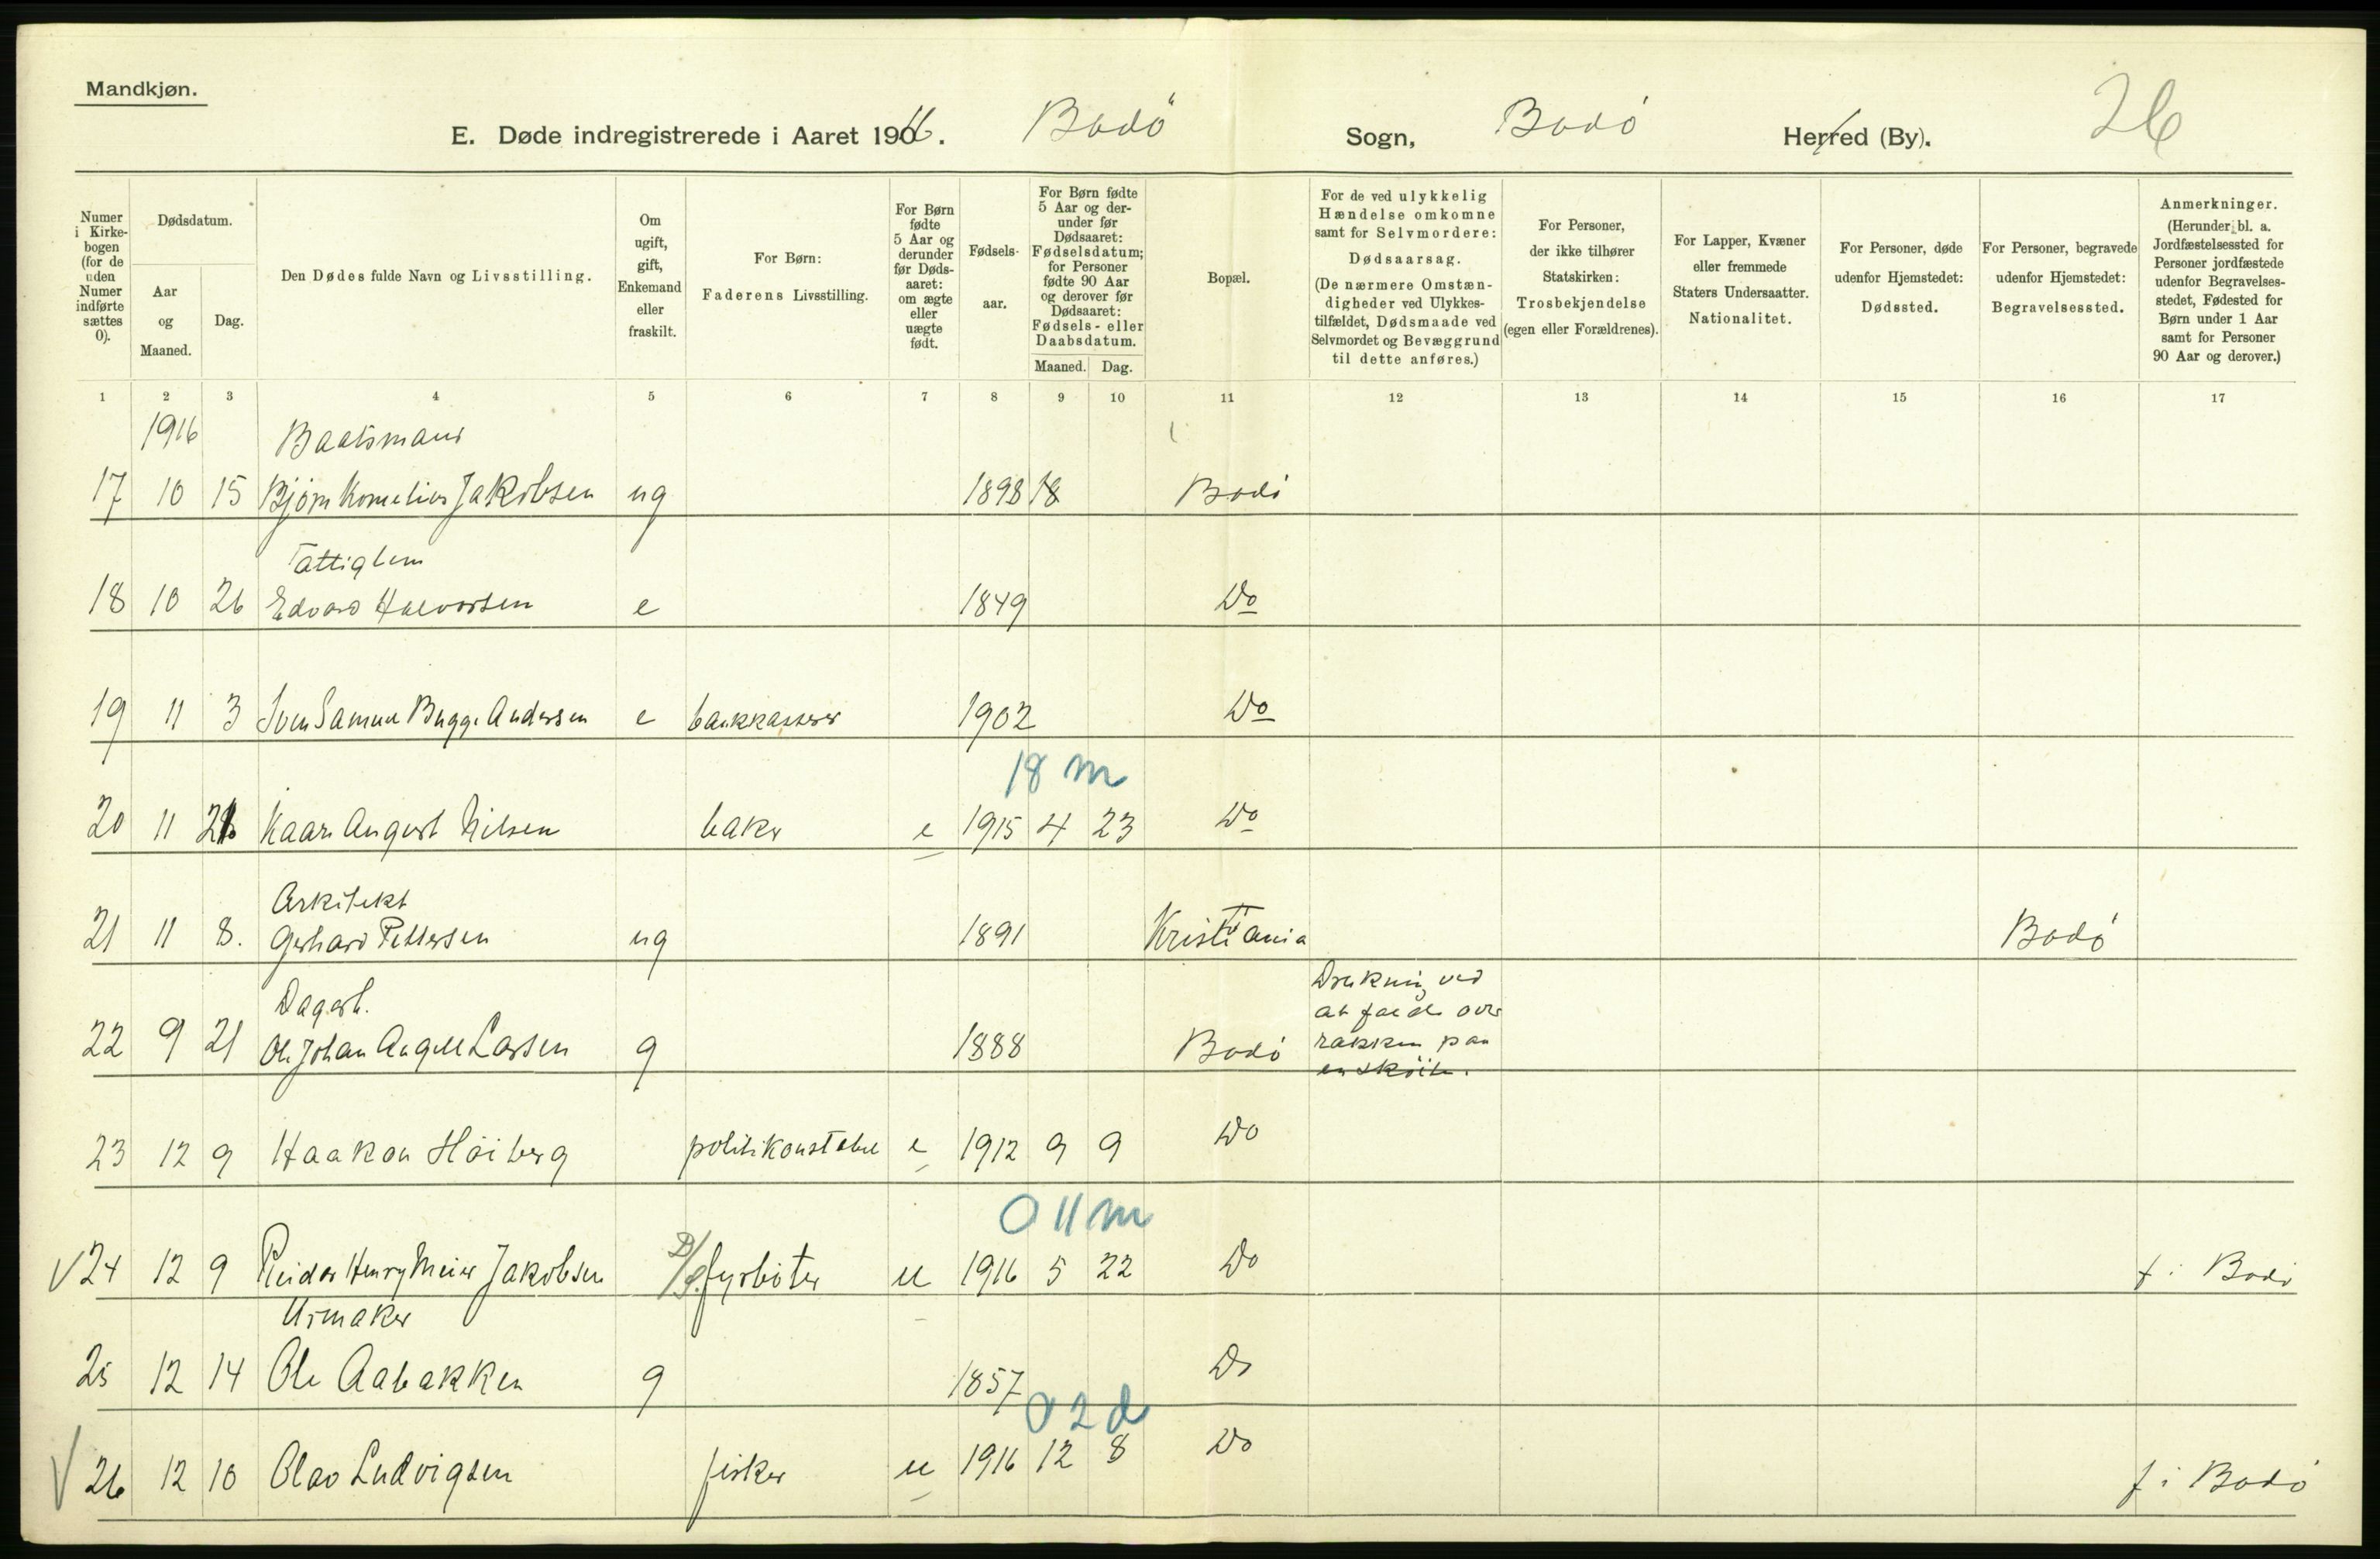 Mandkjøn.
E. Døde indregistrerede i Aaret 1916. Bodö Sogn, Bodö Herred (By). 26
Numer i Kirkebogen (for de uden Numer indførte sættes 0).
Dødsdatum.
Aar og Maaned.
Dag.
Den Dødes fulde Navn og Livsstilling.
Om ugift, gift, Enkemand eller fraskilt.
For Børn: Faderens Livsstilling.
For Børn fødte 5 Aar og derunder før Dødsaaret: om ægte eller uægte født.
Fødselsaar.
For Børn fødte 5 Aar og derunder før Dødsaaret: Fødselsdatum; for Personer fødte 90 Aar og derover før Dødsaaret: Fødsels- eller Daabsdatum.
Maaned. Dag.
Bopæl.
For de ved ulykkelig Hændelse omkomne samt for Selvmordere: Dødsaarsag. (De nærmere Omstændigheder ved Ulykkestilfældet, Dødsmaade ved Selvmordet og Bevæggrund til dette anføres.)
For Personer, der ikke tilhører Statskirken: Trosbekjendelse (egen eller Forældrenes).
For Lapper, Kvæner eller fremmede Staters Undersaatter. Nationalitet.
For Personer, døde udenfor Hjemstedet: Dødssted.
For Personer, begravede udenfor Hjemstedet: Begravelsessted.
Anmerkninger. (Herunder bl. a. Jordfæstelsessted for Personer jordfæstede udenfor Begravelsesstedet, Fødested for Børn under 1 Aar samt for Personer 90 Aar og derover.)
1 2 3 4 5 6 7 8 9 10 11 12 13 14 15 16 17
1916 Baatsmand
17 10 15 Bjørn Kornelius Jakobsen ug 1898 18 Bodö
Fattiglem
18 10 26 Edvard Halvorsen e 1849 Do
19 11 3 Sven Samuel Bugge Andersen e bankkasserer 1902 Do
18 m
20 11 Kaare August Nilsen baker e 1915 4 23 Do
Arkitekt
21 11 8. Gerhard Pettersen ug 1891 Kristiania Bodö
Dagarb.
22 9 21 Ole Johan Angell Larsen g 1888 Bodö
Drukning ved
at falde over
rækken paa
en sköite.
23 12 9 Haakon Höiberg politikonstabel e 1912 9 9 Do
0 11 m
V 24 12 9 Reidar Henry Meier Jakobsen fyrböter u 1916 5 22 Do f i Bodö
Urmaker
25 12 14 Ole Aabakken g 1857 Do
0 2 d
V 26 12 10 Olav Ludvigsen fisker u 1916 12 8 Do f i Bodö